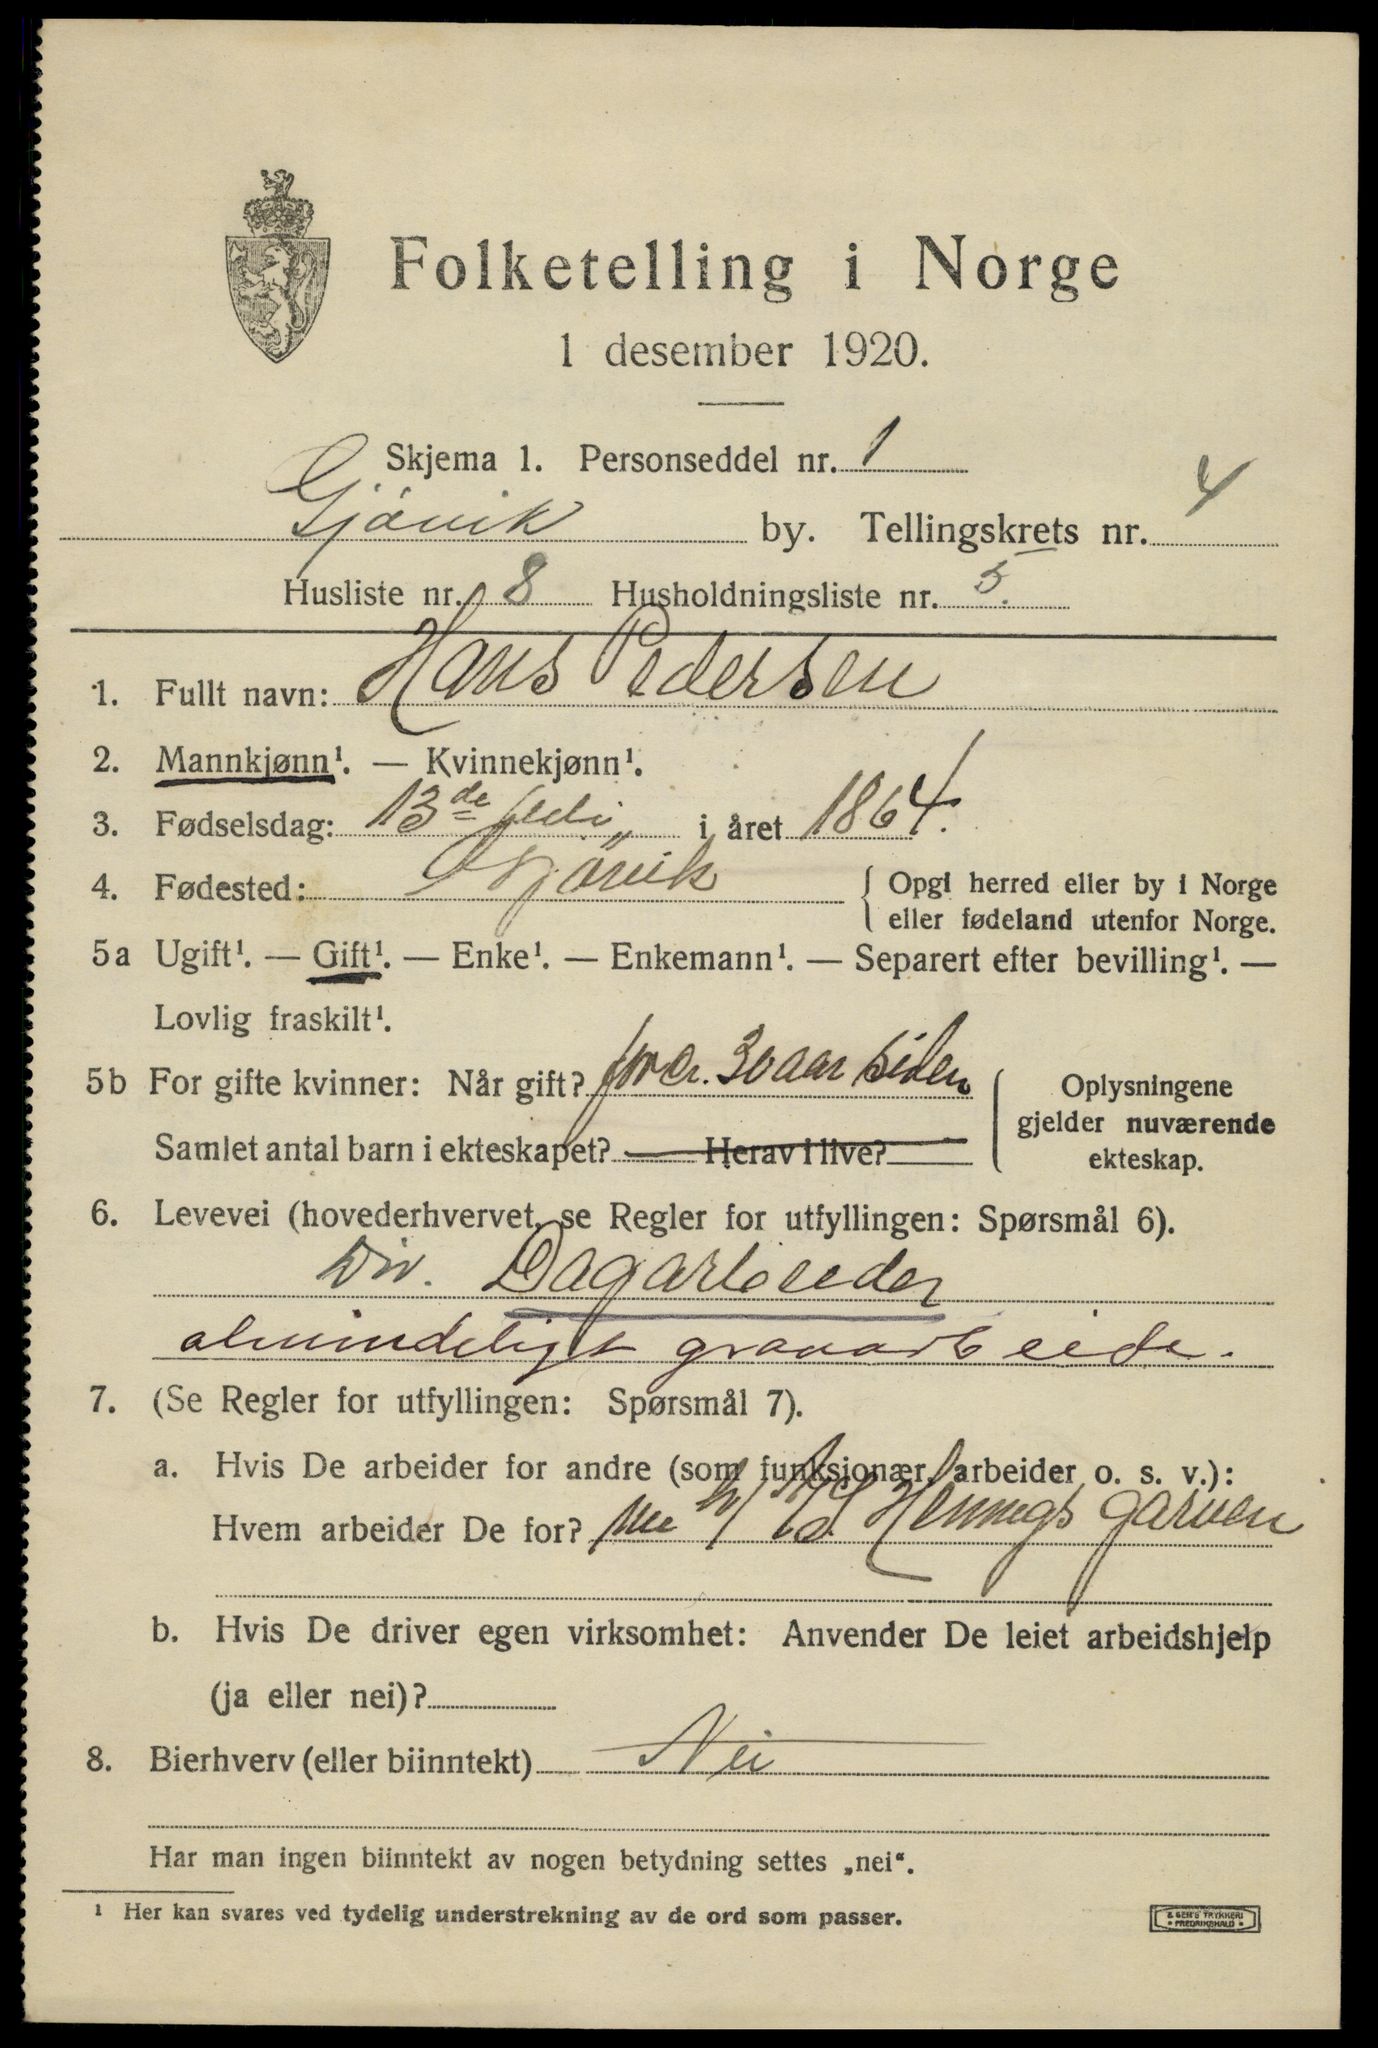 Folketelling i Norge
1 desember 1920.
Skjema 1. Personseddel nr. 1
Gjøvik by. Tellingskrets nr. 4
Husliste nr. 8 Husholdningsliste nr. 5.
1. Fullt navn: Hans Pedersen
2. Mannkjønn¹. — Kvinnekjønn¹.
3. Fødselsdag: 13de i året 1864.
4. Fødested: Gjøvik { Opgi herred eller by i Norge
eller fødeland utenfor Norge.
5a Ugift¹. — Gift¹. — Enke¹. — Enkemann¹. — Separert efter bevilling¹. —
Lovlig fraskilt¹.
5b For gifte kvinner: Når gift? for cr. 30 aar siden { Oplysningene
gjelder nuværende
Samlet antal barn i ekteskapet? — Herav i live? ekteskap.
6. Levevei (hovederhvervet, se Regler for utfyllingen: Spørsmål 6).
Div. Dagarbeider
almindeligt gravarbeide.
7. (Se Regler for utfyllingen: Spørsmål 7).
a. Hvis De arbeider for andre (som funksjonær, arbeider o. s. v.):
Hvem arbeider De for? A/S Hennigs garveri
b. Hvis De driver egen virksomhet: Anvender De leiet arbeidshjelp
(ja eller nei)?
8. Bierhverv (eller biinntekt) Nei
Har man ingen biinntekt av nogen betydning settes „nei“.
¹ Her kan svares ved tydelig understrekning av de ord som passer.
TRYKKERI
FREDRIKSHALD